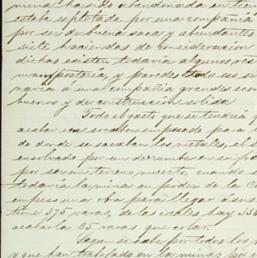 minal ha sido abandonada en tiem
estaba esplotada por una compañia
por ser de buena saca y abundantes
siete haciendas de consideracion
dichas existen todavia algunos
mamposteria y paredes todo su
naria á una compañia grandes eco
buenos y de construccion solida
Todo el gasto que se tendria
acabar un socabon empesado para
de donde se sacaban los metales, el
ensolvado por un derrumbe en su
por ser un terreno muerto, cuando
todavia la mina en poder de la C
empesó una obra para llegar á sus
tiene 375 varas, de las cuales hay 35
acabarla 25 varas que
Segun se sabe por todos los
y que han trabajado en la mina; por